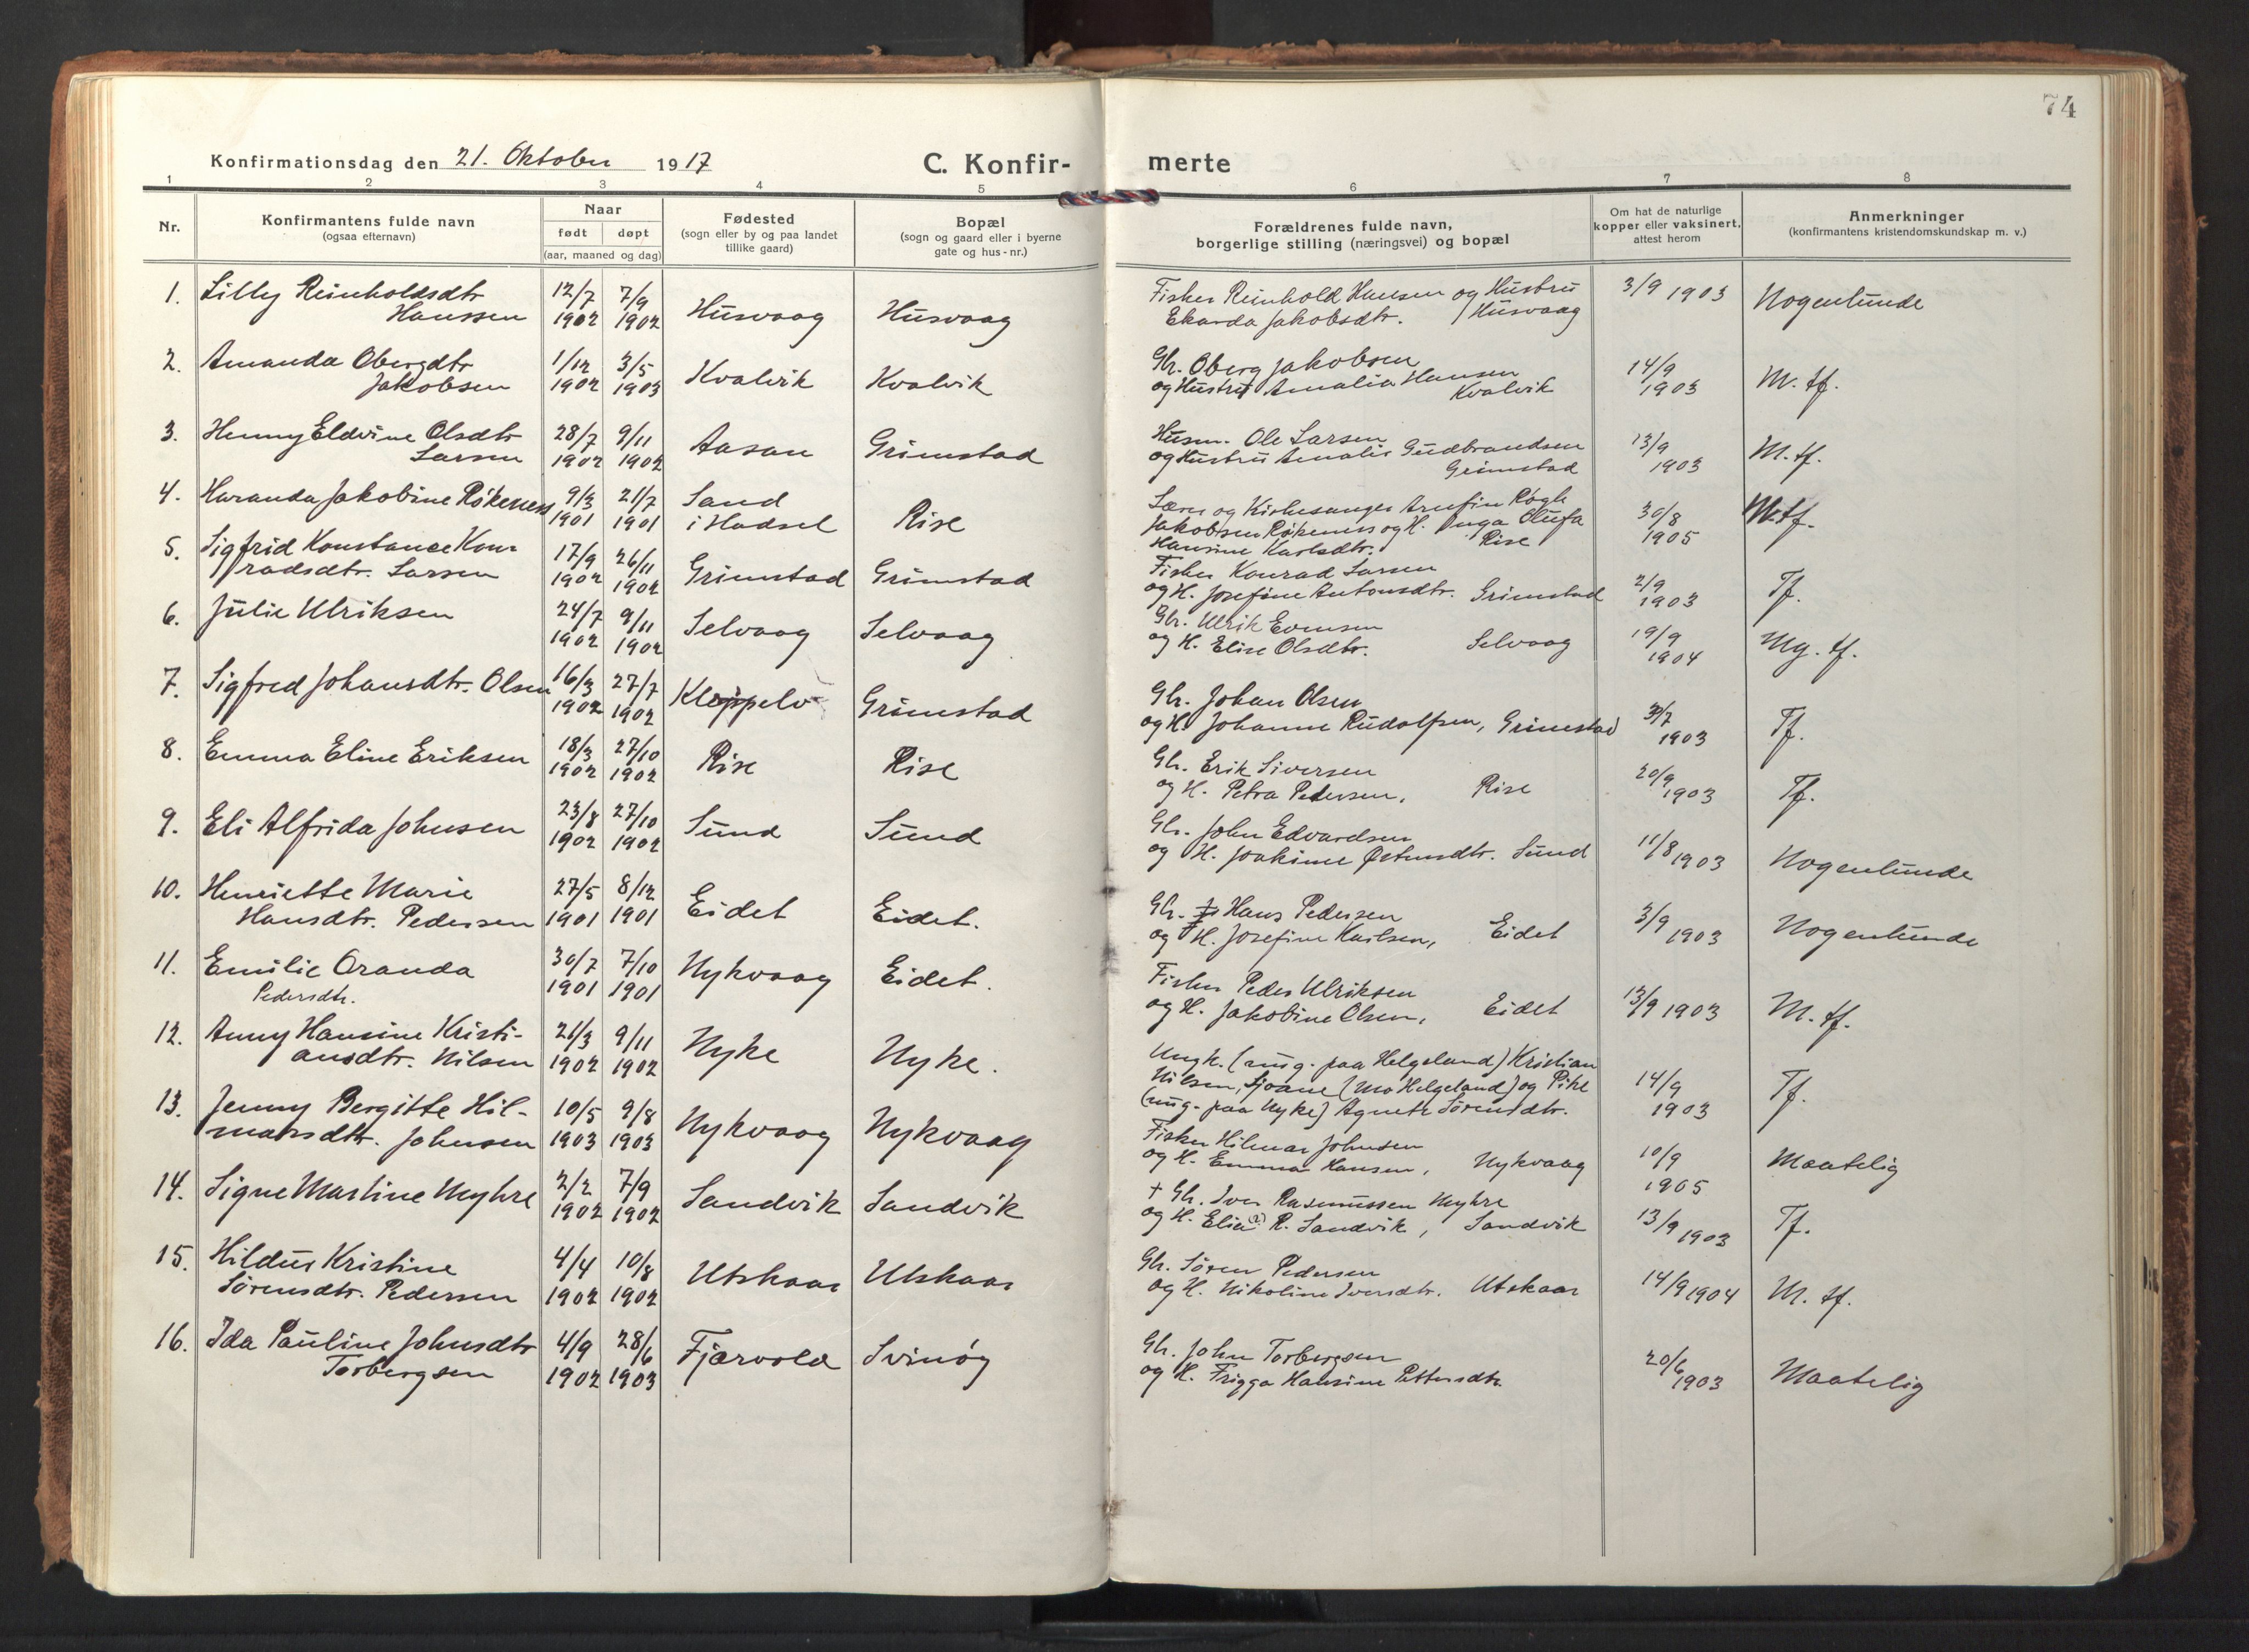 74
Konfirmationsdag den 21. Oktober 1917
C. Konfir-
merte
1 2 3 4 5 6 7 8
Nr.
Konfirmantens fulde navn
(ogsaa efternavn)
Naar
født døpt
(aar, maaned og dag)
Fødested
(sogn eller by og paa landet
tillike gaard)
Bopæl
(sogn og gaard eller i byerne
gate og hus-nr.)
Forældrenes fulde navn,
borgerlige stilling (næringsvei) og bopæl
Om hat de naturlige
kopper eller vaksinert,
attest herom
Anmerkninger
(konfirmantens kristendomskundskap m. v.)
1. Lilly Reinholdsdtr 12/7 7/9
Hanssen 1902 1902 Husvaag Husvaag
Fisker Reinhold Hansen og Hustru 3/9 1903 Nogenlunde
Ekarda Jakobsdtr. / Husvaag
2. Amanda Obergdtr 1/12 3/5
Jakobsen 1902 1903 Kvalvik Kvalvik
Gbr. Oberg Jakobsen 14/9
og Hustru Amalia Hansen 1903 M. tf.
Kvalvik
3. Henny Eldvine Olsdtr 28/7 9/11
Larsen 1902 1902 Aasan Grimstad
Husm. Ole Larsen 13/9
og Hustru Amalie Gudbrandsen 1903 M. tf.
Grimstad
4. Haranda Jakobine Røkeness 9/3 21/7 Sand
1901 1901 i Hadsel Rise
Lærer og Kirkesanger Arnfin Rogh 30/8 M. tf.
Jakobsen Røkenes og H. Inga Olufa 1905
Hansine Karlsdtr. Rise
5. Sigfrid Konstance Kon- 17/9 26/11
radsdtr. Larsen 1902 1902 Grimstad Grimstad
Fisker Konrad Larsen 2/9
og H. Josefine Antonsdtr. Grimstad 1903 Tf.
6. Julie Ulriksen 24/7 9/11
1902 1902 Selvaag Selvaag
Gbr. Ulrik Evensen 19/9
og H. Elise Olsdtr. Selvaag 1904 Mg. tf.
7. Sigfred Johansdtr. Olsen 16/3 27/7
1902 1902 Grimstad
Gbr. Johan Olsen 3/7
og H. Johanne Rudolfsen, Grimstad 1903 Tf.
8. Emma Eline Eriksen 18/3 27/10
1902 1902 Rise Rise
Gbr. Erik Siversen 20/9
og H. Petra Pedersen, Rise 1903 Tf.
9. Eli Alfrida Johnsen 23/8 27/10
1902 1902 Sund Sund
Gbr. John Edvardsen 11/8
og H. Joakime Østensdtr. Sund 1903 Nogenlunde
10. Henriette Marie 27/5 8/12
Hansdtr. Pedersen 1901 1901 Eidet Eidet.
Gbr. Hans Pedersen 3/9
og H. Josefine Karlsen, Eidet 1903 Nogenlunde
11. Emilie Oranda 30/7 7/10
Pedersdtr. 1901 1901 Nykvaag Eidet.
Fisker Peder Ulriksen
og H. Jakobine Olsen, Eidet 13/9 1903 M. tf.
12. Anny Hansine Kristi- 21/3 9/11
ansdtr. Nilsen 1902 1902 Nyke Nyke.
Ungk. (ang. paa Helgeland) Kristian
Nilsen, (Mo Helgeland) og Pike 14/9
(ung. paa Nyke) Agnete Sørensdtr. 1903 Tf.
13. Jenny Bergitte Hil- 10/5 9/8
marsdtr. Johnsen 1903 1903 Nykvaag Nykvaag
Fisker Hilmar Johnsen 10/9
og H. Emma Hansen, Nykvaag 1905 Maatelig
14. Signe Martine Myhre 2/2 7/9
1902 1902 Sandvik Sandvik
† Gbr. Iver Rasmussen Myhre 13/9
og H. Elia R. Sandvik, Sandvik 1903 Tf.
15. Hildur Kristine 4/4 10/8
Sørensdtr. Pedersen 1902 1902 Utskaar Utskaar
Gbr. Søren Pedersen
og H. Nikoline Iversdtr. Utskaar 14/9 1904 M. tf.
16. Ida Pauline Johnsdtr 4/9 28/6
Torbergsen 1902 1903 Fjærvold Svinøy
Gbr. John Torbergsen 20/6
og H. Frigga Hansine Pettersdtr. 1903 Maatelig